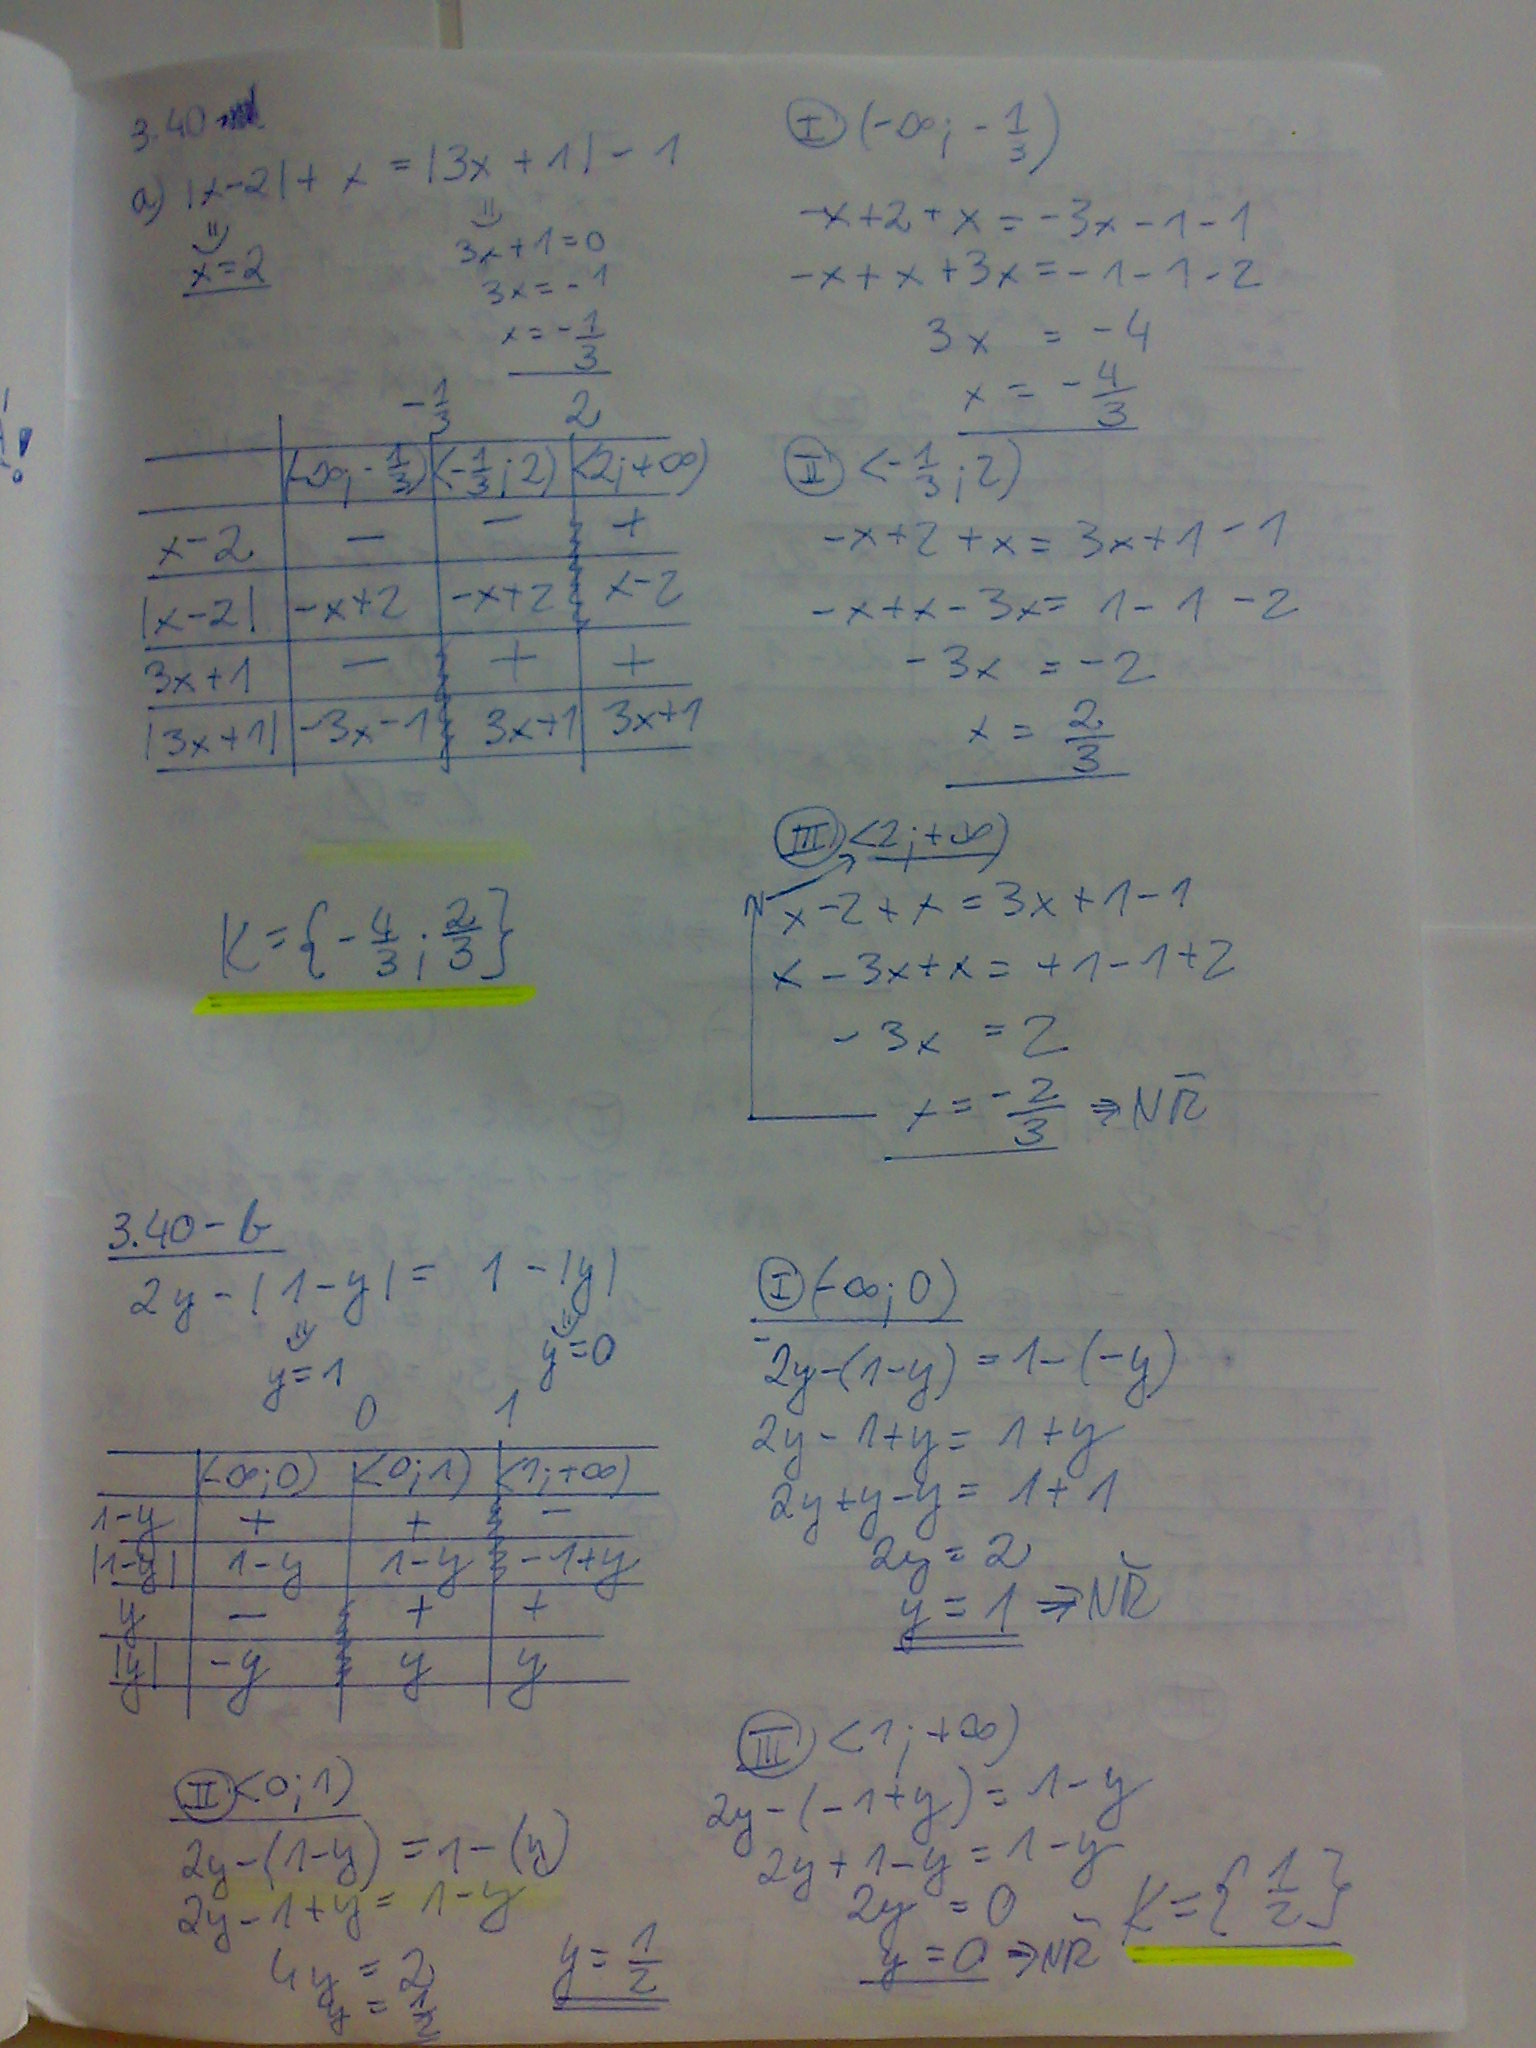 3.40
a) |x-2| + x = |3x + 1| - 1
x=2
3x+1=0
3x=-1
x=-1/3
-1/3 2
(-∞;-1/3) <-1/3;2) <2;+∞)
x-2 - - +
|x-2| -x+2 -x+2 x-2
3x+1 - + +
|3x+1| -3x-1 3x+1 3x+1
K={-4/3;2/3}
I (-∞;-1/3)
-x+2+x=-3x-1-1
-x+x+3x=-1-1-2
3x = -4
x = -4/3
II <-1/3;2)
-x+2+x=3x+1-1
-x+x-3x=1-1-2
-3x = -2
x = 2/3
III <2;+∞)
x-2+x=3x+1-1
x-3x+x=+1-1+2
-3x = 2
x=-2/3 ⇒NŘ
3.40-b
2y-|1-y|= 1-|y|
y=1
y=0
0 1
(-∞;0) <0;1) <1;+∞)
1-y + + -
|1-y| 1-y 1-y -1+y
y - + +
|y| -y y y
I (-∞;0)
2y-(1-y)=1-(-y)
2y-1+y=1+y
2y+y-y=1+1
2y=2
y=1 ⇒NŘ
II <0;1)
2y-(1-y)=1-(y)
2y-1+y=1-y
4y=2
y=1/2
y=1/2
III <1;+∞)
2y-(-1+y)=1-y
2y+1-y=1-y
2y=0
y=0 ⇒NŘ
K={1/2}